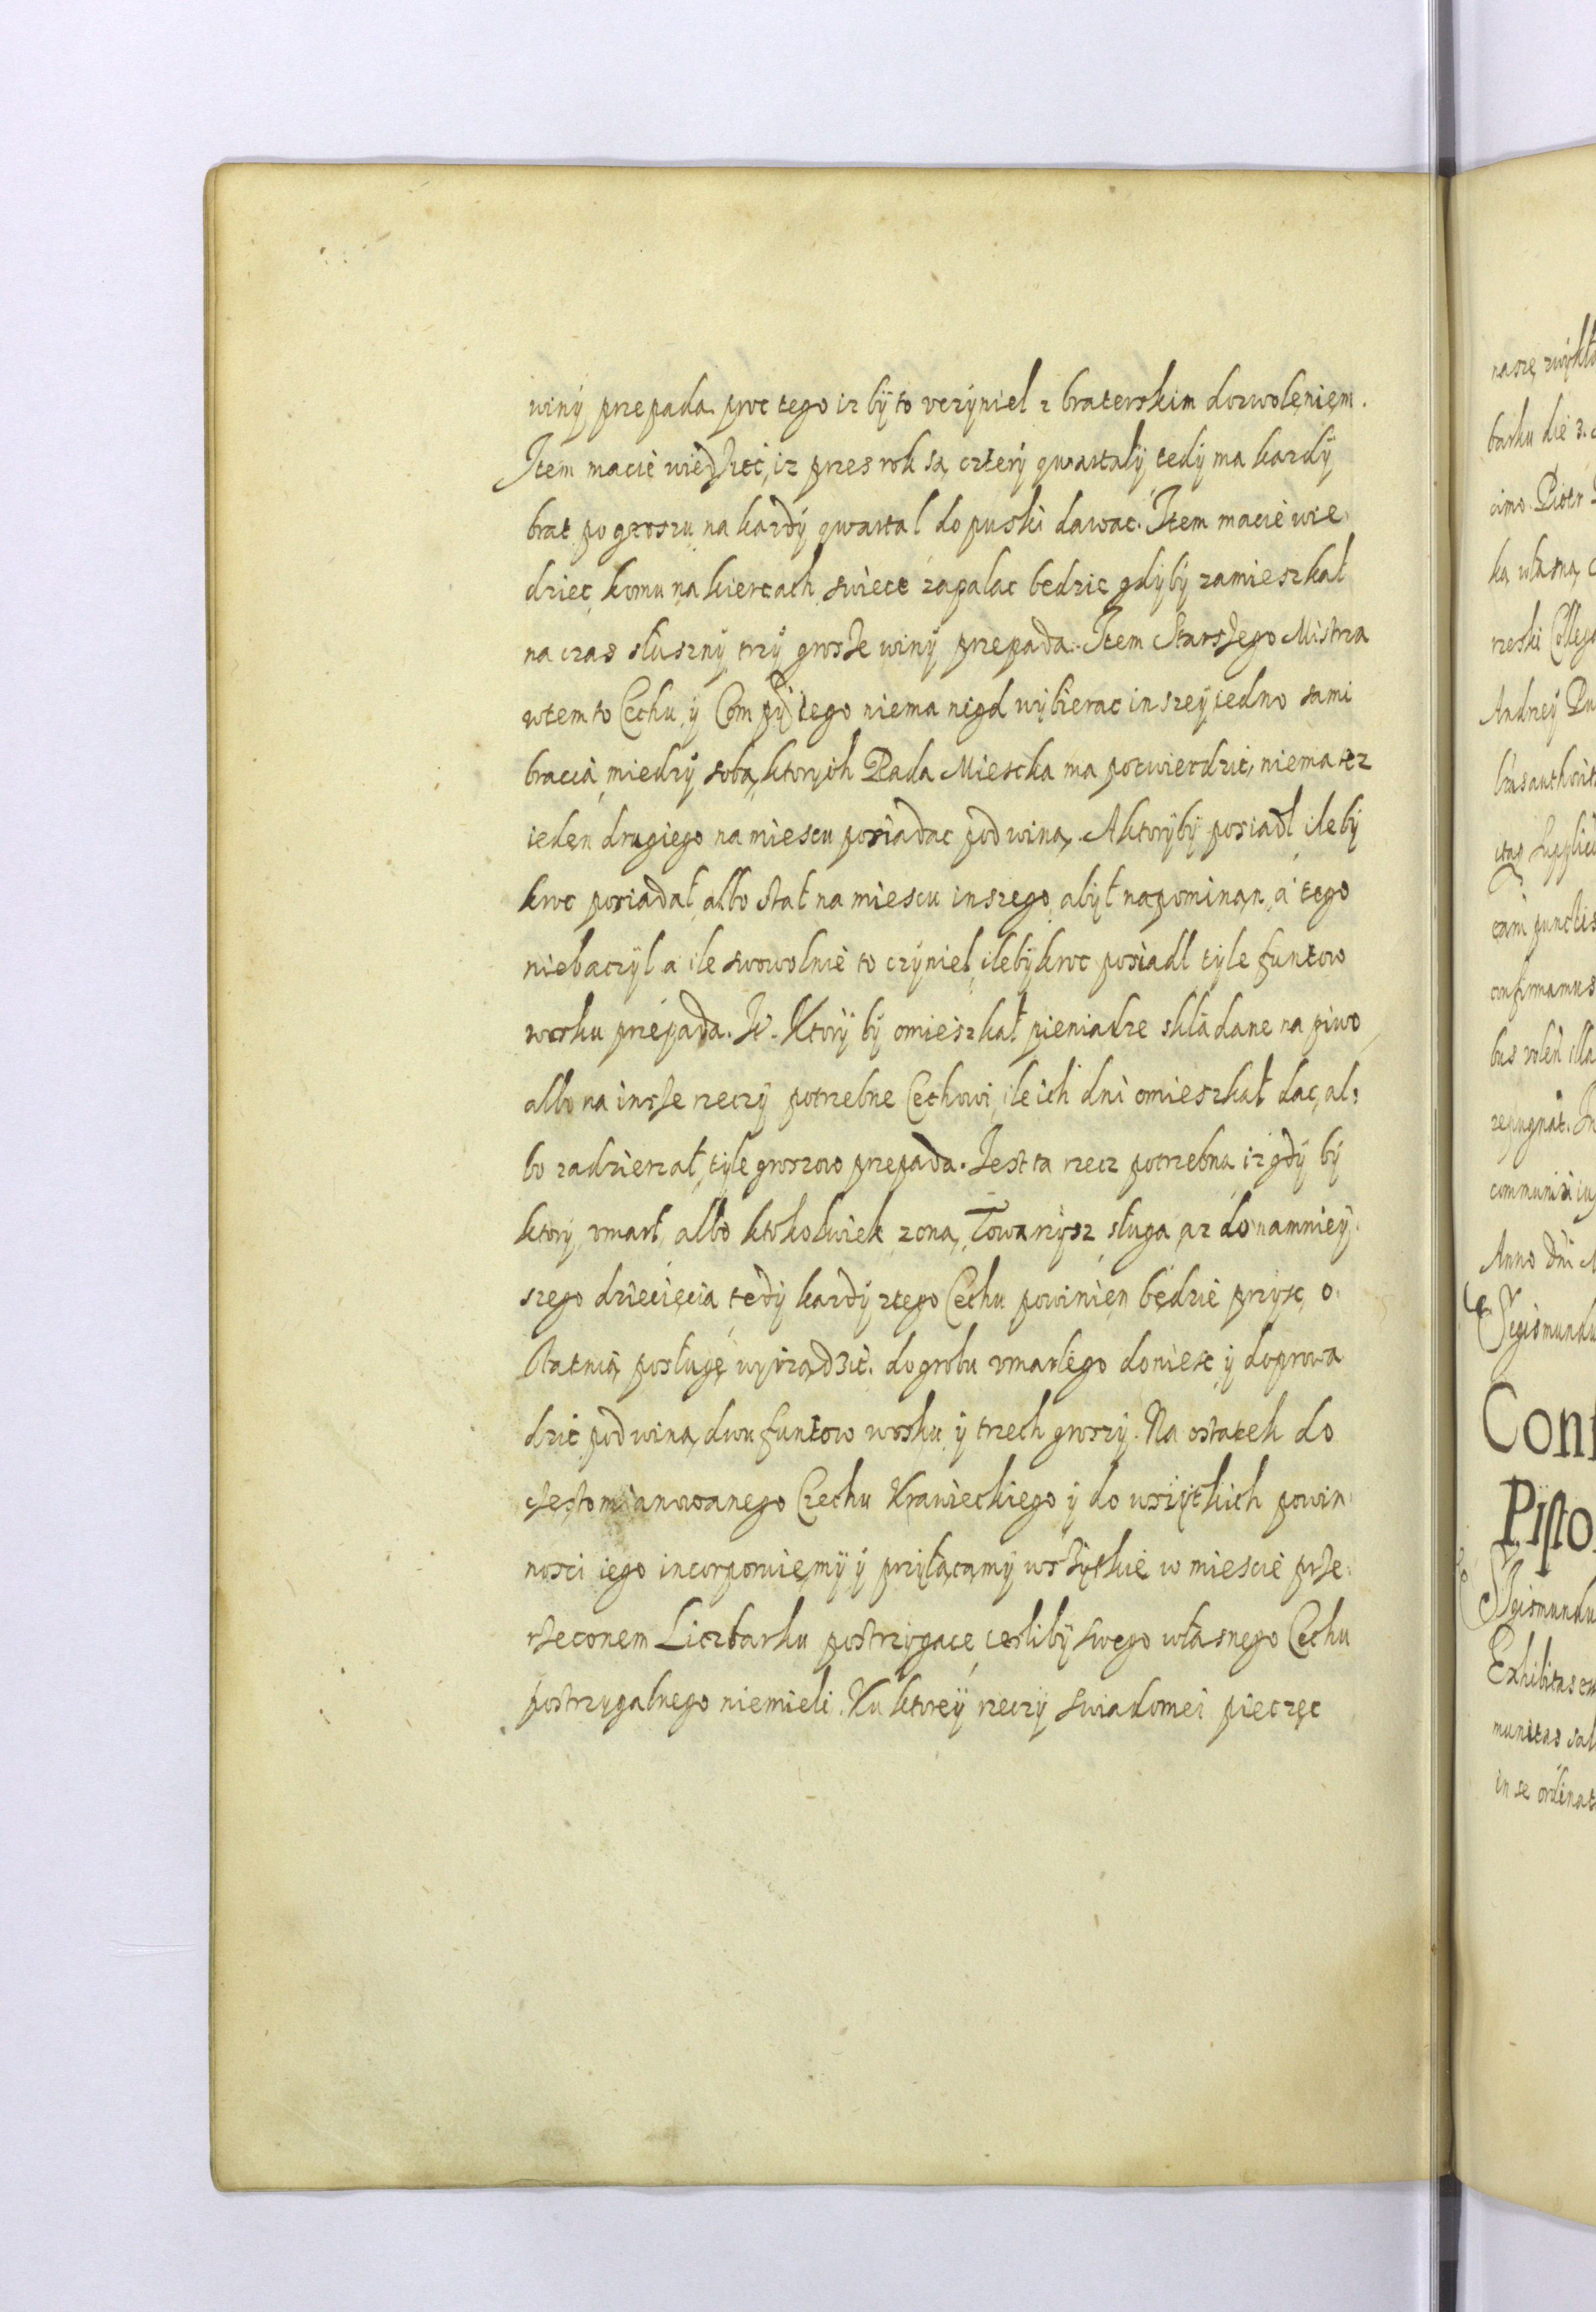 winÿ przepada. proc tego iz bÿ to vczÿniel z braterskim dozwolęnięm.
Item macie wiedzieć, iz przes rok są czterÿ qwartalÿ tedÿ ma kazdÿ
brat po groszu na kazdÿ qwartal do puski dawac. Item macie wie
dziec komu na kiercach swiece zapalac bedzie gdÿbÿ zamieszkał
na czas słusznÿ trzÿ grosze winÿ przepada. Item Starszego Mistrza
wtem to Cechu ÿ Compÿ iego niema nigd wÿbierac inszeÿ iedno sami
bracia miedzÿ sobą, ktorÿch Rada Miescka ma potwierdzić, niema tez
ieden drugiego na miescu posiadac pod winą. A ktorÿbÿ posiadł ilebÿ
kroc posiadał albo stał na miescu inszego abÿł napominan, a tego
niebaczÿl a ile swowolnie to czÿniel, ilebÿkroc posiadl tÿle funtow
wosku przepada. It. Ktorÿ bÿ omieszkał pieniadze składane na piwo
albo na insze rzeczÿ potrzebne Cechowi, ile ich dni omieszkał dac, al:
bo zadzierzał, tÿle groszow przepada. Jest ta rzecz potrzebna iz gdÿ bÿ
ktorÿ vmarł, albo ktokolwiek zona, Towarzÿsz sługa, az do namnieÿ
szego dziecięcia tedÿ kazdÿ ztego Cechu powinięn będzie przÿsc, o
statnią posługę wÿrządzić. do grobu vmarłego doniesc ÿ doprowa
dzić, pod winą dwu funtow wosku ÿ trzech groszÿ. Na ostatek do
czestomianowanego Czechu Krawieckiego ÿ do wszÿtkich powin
nosci iego incorporuięmÿ ÿ przÿłącamÿ wszÿtkie w miescie prze
rzeconem Liczbarku postrzÿgacę iesliby swego własnego Cechu
postrzÿgalnego niemieli. Ku ktoreÿ rzeczÿ swiadomei pieczęc
nasze zwÿkło
barku die 3.
cimo. Piotr
ka własną
rzeski Colleg
Andrzeÿ
confirmamus
repugnāt. In
Anno Dni
Sigismundu
Conf
Pisto
Sigismundu
Exhibitas
munitas sal
in se ordinat